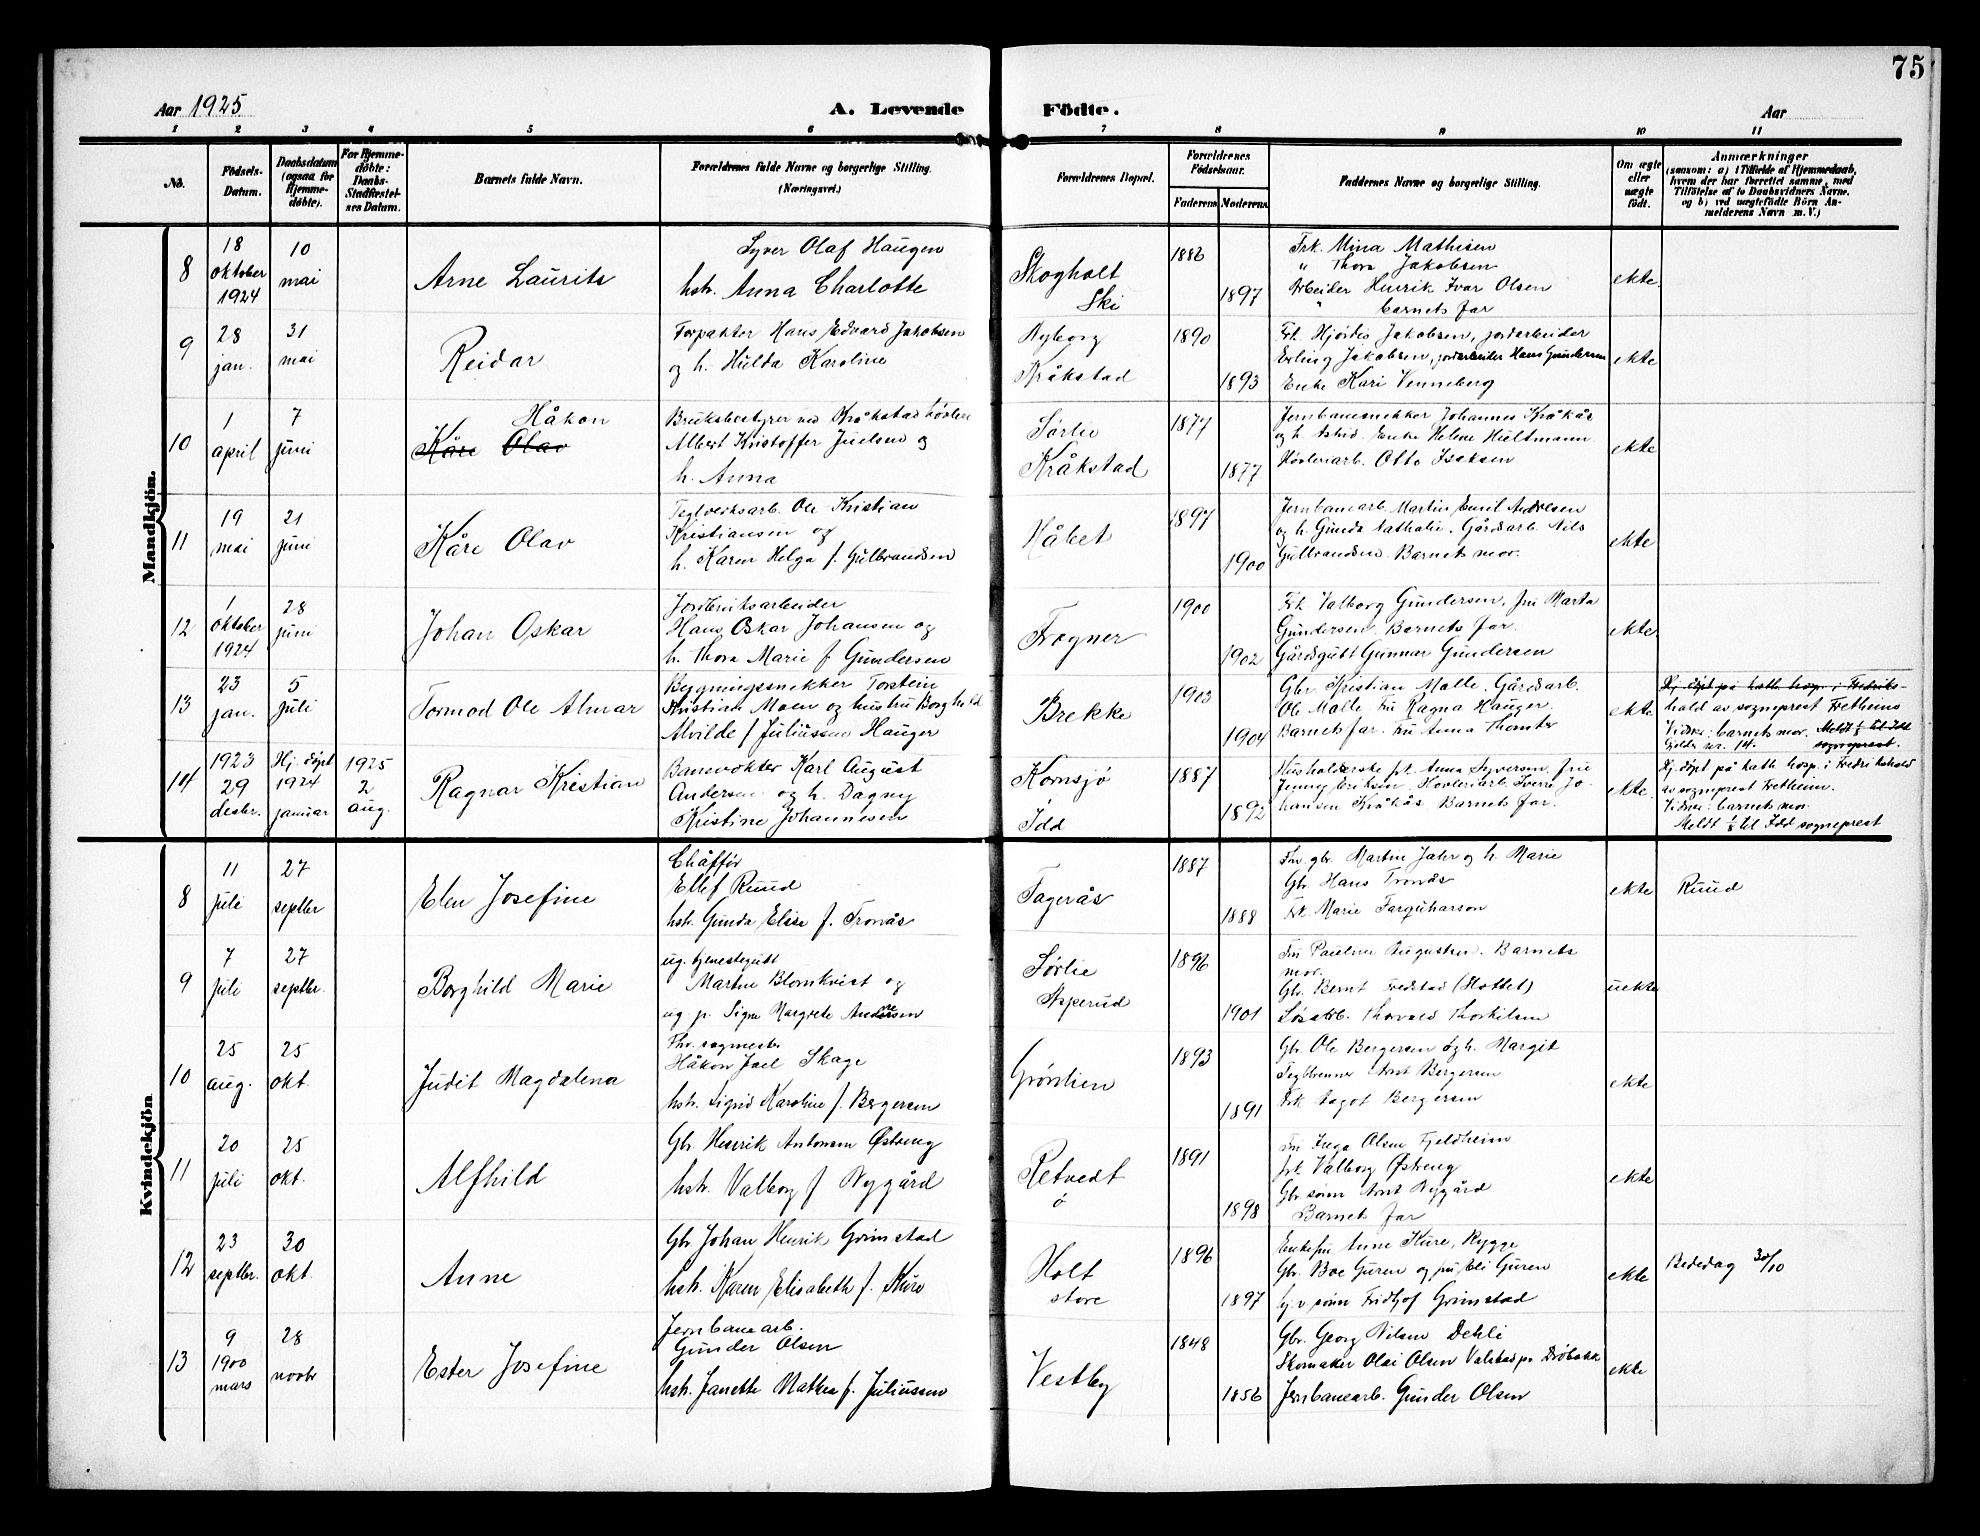 75
Aar 1925
A. Levende Födte.
Aar
1 2 3 4 5 6 7 8 9 10 11
No.
Födsels-
Datum.
Daabsdatum
(ogsaa for
Hjemme-
döbte).
For Hjemme-
döbte:
Daabs-
Stadfæstel-
ses Datum.
Barnets fulde Navn.
Forældrenes fulde Navne og borgerlige Stilling.
(Næringsvei.)
Forældrenes Bopæl.
Forældrenes
Födselsaar.
Faderens
Moderens
Faddernes Navne og borgerlige Stilling.
Om ægte
eller
uægte
födt.
Anmærkninger
(saasom: a) i Tilfælde af Hjemmedaab,
hvem der har forrettet samme, med
Tilföielse af to Daabsvidners Navne,
og b) ved uægtefödte Börn An-
melderens Navn m. V.)
Mandkjön.
8
18
oktober
1924
10
mai
Arne Laurits
Syver Olaf Haugen
hstr. Anna Charlotte
Skogholt
Ski
1886
1897
Frk. Mina Mathisen
" Thora Jakobsen
Arbeider Henrik Ivar Olsen
barnets far
ekte
9
28
jan.
31
mai
Reidar
Forpakter Hans Edvard Jakobsen
og h. Hulda Karoline
Nyborg
Kråkstad
1890
1893
Frk. Hjørdis Jakobsen, jordarbeider
Erling Jakobsen, jordarbeider Hans Gundersen
Enke Kari Venneberg
ekte
10
1
april
7
juni
Håkon
Kåre Olav
Bruksbestyrer ved Kråkstad
Albert Kristoffer Juelsen og
h. Anna
Sørlie
Kråkstad
1877
1877
Jernbanesnekker Johannes Kråkås
og h. Astrid. Enke Helene Hultmann
Høvleriarb. Otto Isaksen
ekte
11
19
mai
21
juni
Kåre Olav
Teglverksarb. Ole Kristian
Kristiansen og
h. Karen Helga f. Gulbrandsen
Håbet
1897
1900
Jernbanearb. Martin Emil Andresen
og h. Gunda Nathalie. Gårdsarb. Nils
Gulbrandsen. Barnets mor.
ekte
12
1
oktober
1924
28
juni
Johan Oskar
Jordbruksarbeider
Hans Oskar Johansen og
h. Thora Marie f Gundersen
Frogner
1900
1902
Frk. Valborg Gundersen, fru Marta
Gundersen, Barnets far.
Gårdsgutt Gunnar Gundersen
ekte
13
23
jan.
5
juli
Tormod Ole Almar
Bygningssnekker Torstein
Kristian Moen og hustru Borghild
Alvilde f Juliussen Hauger
Brekke
1903
1904
Gbr. Kristian Molle. Gårdsarb.
Ole Molle. Fru Ragna Hauger.
Barnets far. Fru Anna Thomter
ekte
Hj. døpt på kath. hosp. i Fredriks-
hald av sogneprest Fretheim
Vidner: barnets mor. Meldt 1/8 til Idd
Gjelder nr. 14. sogneprest.
14
1923
29
desbr.
Hj. døpt
1924
januar
1925
2
aug.
Ragnar Kristian
Banevokter Karl August
Andersen og h. Dagny
Kristine Johannesen
Kornsjø
Idd
1887
1892
Husholderske frk. Anna Syversen, fru
Jenny Eriksen. Høvleriarb. Sverre Jo-
hansen Kråkås. Barnets far.
ekte
Hj. døpt på kath. hosp. i Fredrikshald
av sogneprest Fretheim.
Vidner: barnets mor.
Meldt 1/8 til Idd sogneprest
Kvindekjön
8
11
juli
27
septbr
Elen Josefine
Chåffør
Ellef Ruud
hstr. Gunda Elise f. Tronås
Fagerås
1887
1888
Fhv. gbr. Martin Jahr og h. Marie
Gbr. Hans Tronås
Frk. Marie Farquharson
ekte
Ruud
9
7
juli
27
septbr.
Borghild Marie
ug. tjenestegutt
Martin Blomkvist og
ug. p. Signe Margrete Andersen
Sørlie
Asperud
1896
1901
Fru Pauline Augustsen. Barnets
mor.
Gbr. Bernt Fredstad (Hottet)
Løsarb. Thorvald Thorkilsen
uekte
10
25
aug.
25
okt.
Judit Magdalena
Håkon Joel Skage
hstr. Sigrid Karoline f. Bergersen
Grønlien
1893
1891
Gbr. Ole Bergersen og h. Margit
Teglbrenner Arnt Bergersen
Frk Aagot Bergersen
ekte
11
20
juli
25
okt.
Alfhild
Gbr. Henrik Antonsen Østreng
hstr. Valborg f Nygård
Retvedt
ø
1891
1898
Fru Inga Olsen Fjeldheim
frk. Valborg Østreng
Gbr. sønn Arnt Nygård
Barnets far
ekte
12
23
septbr.
30
okt.
Anne
Gbr Johan Henrik Grimstad
hstr. Karen Elisabeth f. Kure
Holt
store
1896
1897
Enkefru Anne Kure, Rygge
Gbr. Boe Guren og fru Eli Guren
gj. v. sønn Fridtjof Grimstad
ekte
Bededag 30/10
13
9
1900
mars
28
novbr
Ester Josefine
Jernbanearb.
Gunder Olsen
hstr. Janette Mathea f. Juliussen
Vestby
1848
1856
Gbr. Georg Nilsen Dehli
Skomaker Olai Olsen Valstad pr Drøbak
Jernbanearb. Gunder Olsen
ekte